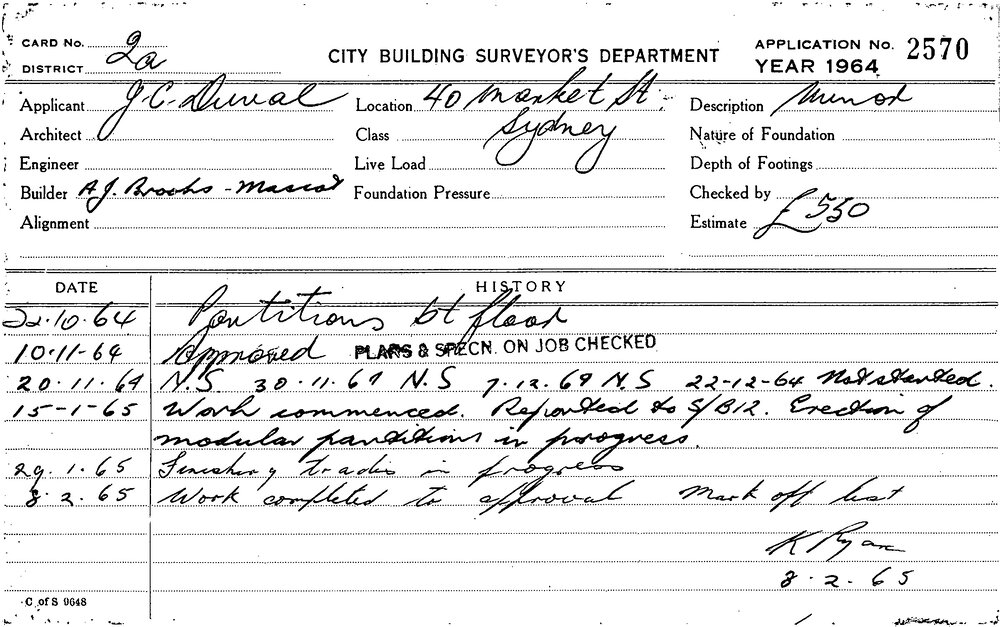 CARD No. 2a
DISTRICT
CITY BUILDING SURVEYOR'S DEPARTMENT
APPLICATION No. 2570
YEAR 1964
Applicant J.C. Duval Location 40 Market St. Description Minor
Architect Class Sydney Nature of Foundation
Engineer Live Load Depth of Footings
Builder A.J. Brooks - Mascot Foundation Pressure Checked by
Alignment Estimate £550
DATE HISTORY
22.10.64 Partitions 1st floor
10.11-64 Approved PLANS & SPECN. ON JOB CHECKED
20.11.64 N.S 30.11.64 N.S 7.12.64 N.S 22-12-64 Not started.
15-1-65 Work commenced. Reported to S/B12. Erection of
modular partitions in progress.
29.1.65 Finishing trades in progress
8.2.65 Work completed to approval Mark off list
K Ryan
8.2.65
C of S 9648